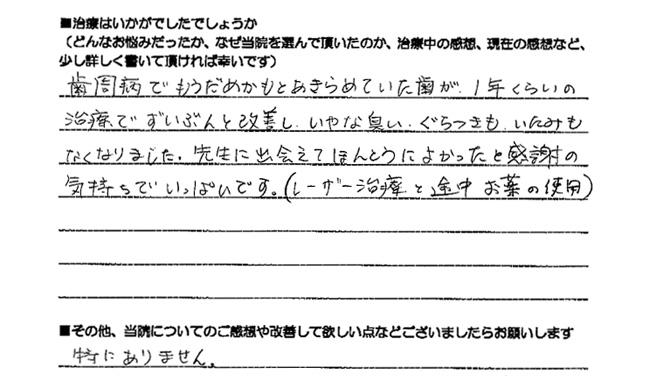 ■治療はいかがでしたでしょうか
（どんなお悩みだったか、なぜ当院を選んで頂いたのか、治療中の感想、現在の感想など、
少し詳しく書いて頂ければ幸いです）
歯周病でもうだめかもとあきらめていた歯が、1年くらいの
治療でずいぶんと改善し、いやな臭い、ぐらつきも、いたみも
なくなりました。先生に出会えてほんとうによかったと感謝の
気持ちでいっぱいです。(レーザー治療と途中お薬の使用)
■その他、当院についてのご感想や改善して欲しい点などございましたらお願いします
特にありません。